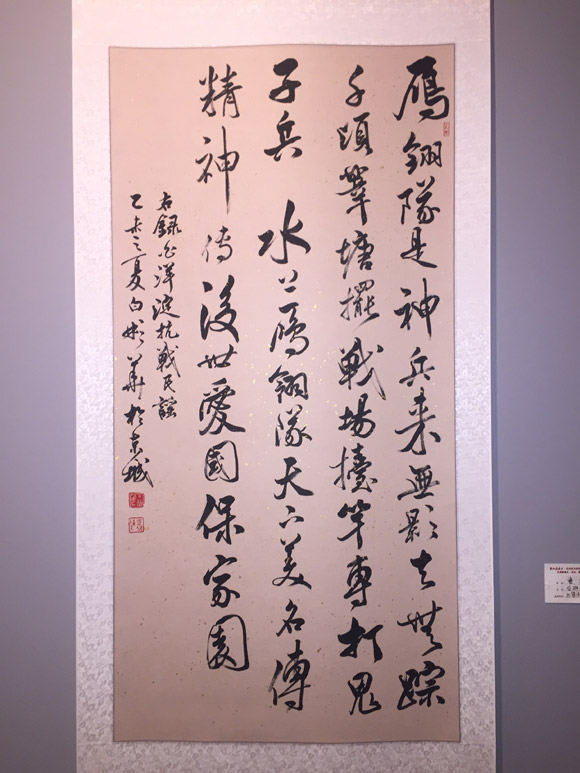 鴈翎隊是神兵来無影去無踪
千頃葦塘擺戰場擡竿專打鬼
子兵 水上鴈翎隊天下美名傳
精神傳後世愛國保家園
右録白洋淀抗戰民謡
乙未之夏白彬華於京城